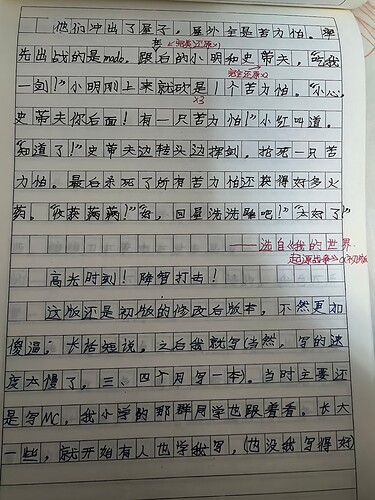 他们冲出了屋子,屋外全是苦力怕。率
先出战的是mado。跟后的小明和史蒂夫,“吃我
完美还原×1
完全还原×2
一剑!”小明刚上来就砍是1个苦力怕。“小心,
×3
史蒂夫你后面!有一只苦力怕!”小红叫道。
“知道了!”史蒂夫边转头边挥剑,拍死一只苦
力怕。最后杀死了所有苦力怕还获得好多火
药。“收获满满!”“好,回屋洗洗睡吧!”“太好了”
——选自《我的世界
起源战争》初版
高光时刻!降智打击!
这版还是初版的修改后版本,不然更加
傻逼,长话短说。之后我就写(当然,写的速
度太慢了,三、四个月写一本)。当时主要还
是写MC,我小学的那群同学也跟着看。长大
一些,就开始有人也学我写,(也没我写得好)